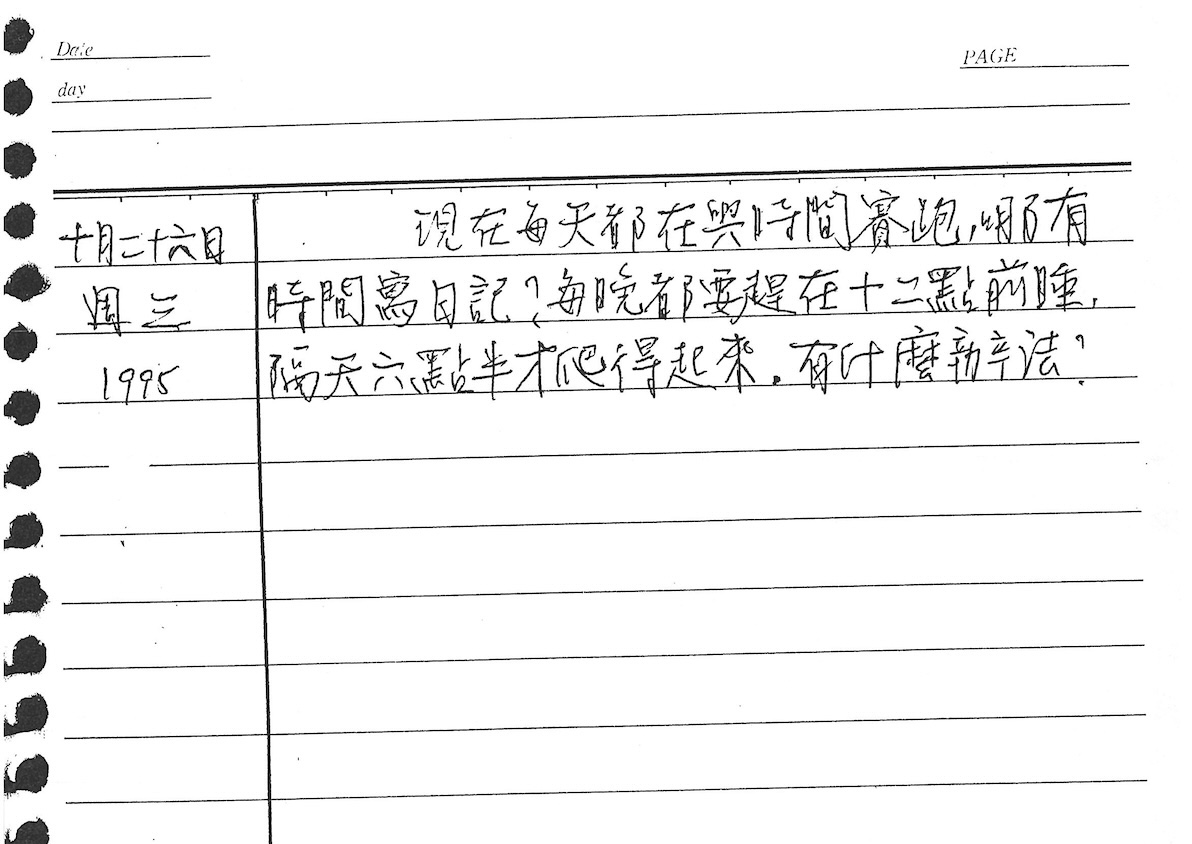 Date
PAGE
day
十月二十六日 現在每天都在與時間賽跑,哪有
週三 時間寫日記?每晚都要趕在十二點前睡,
1995 隔天六點半才爬得起來.有什麼辦法?